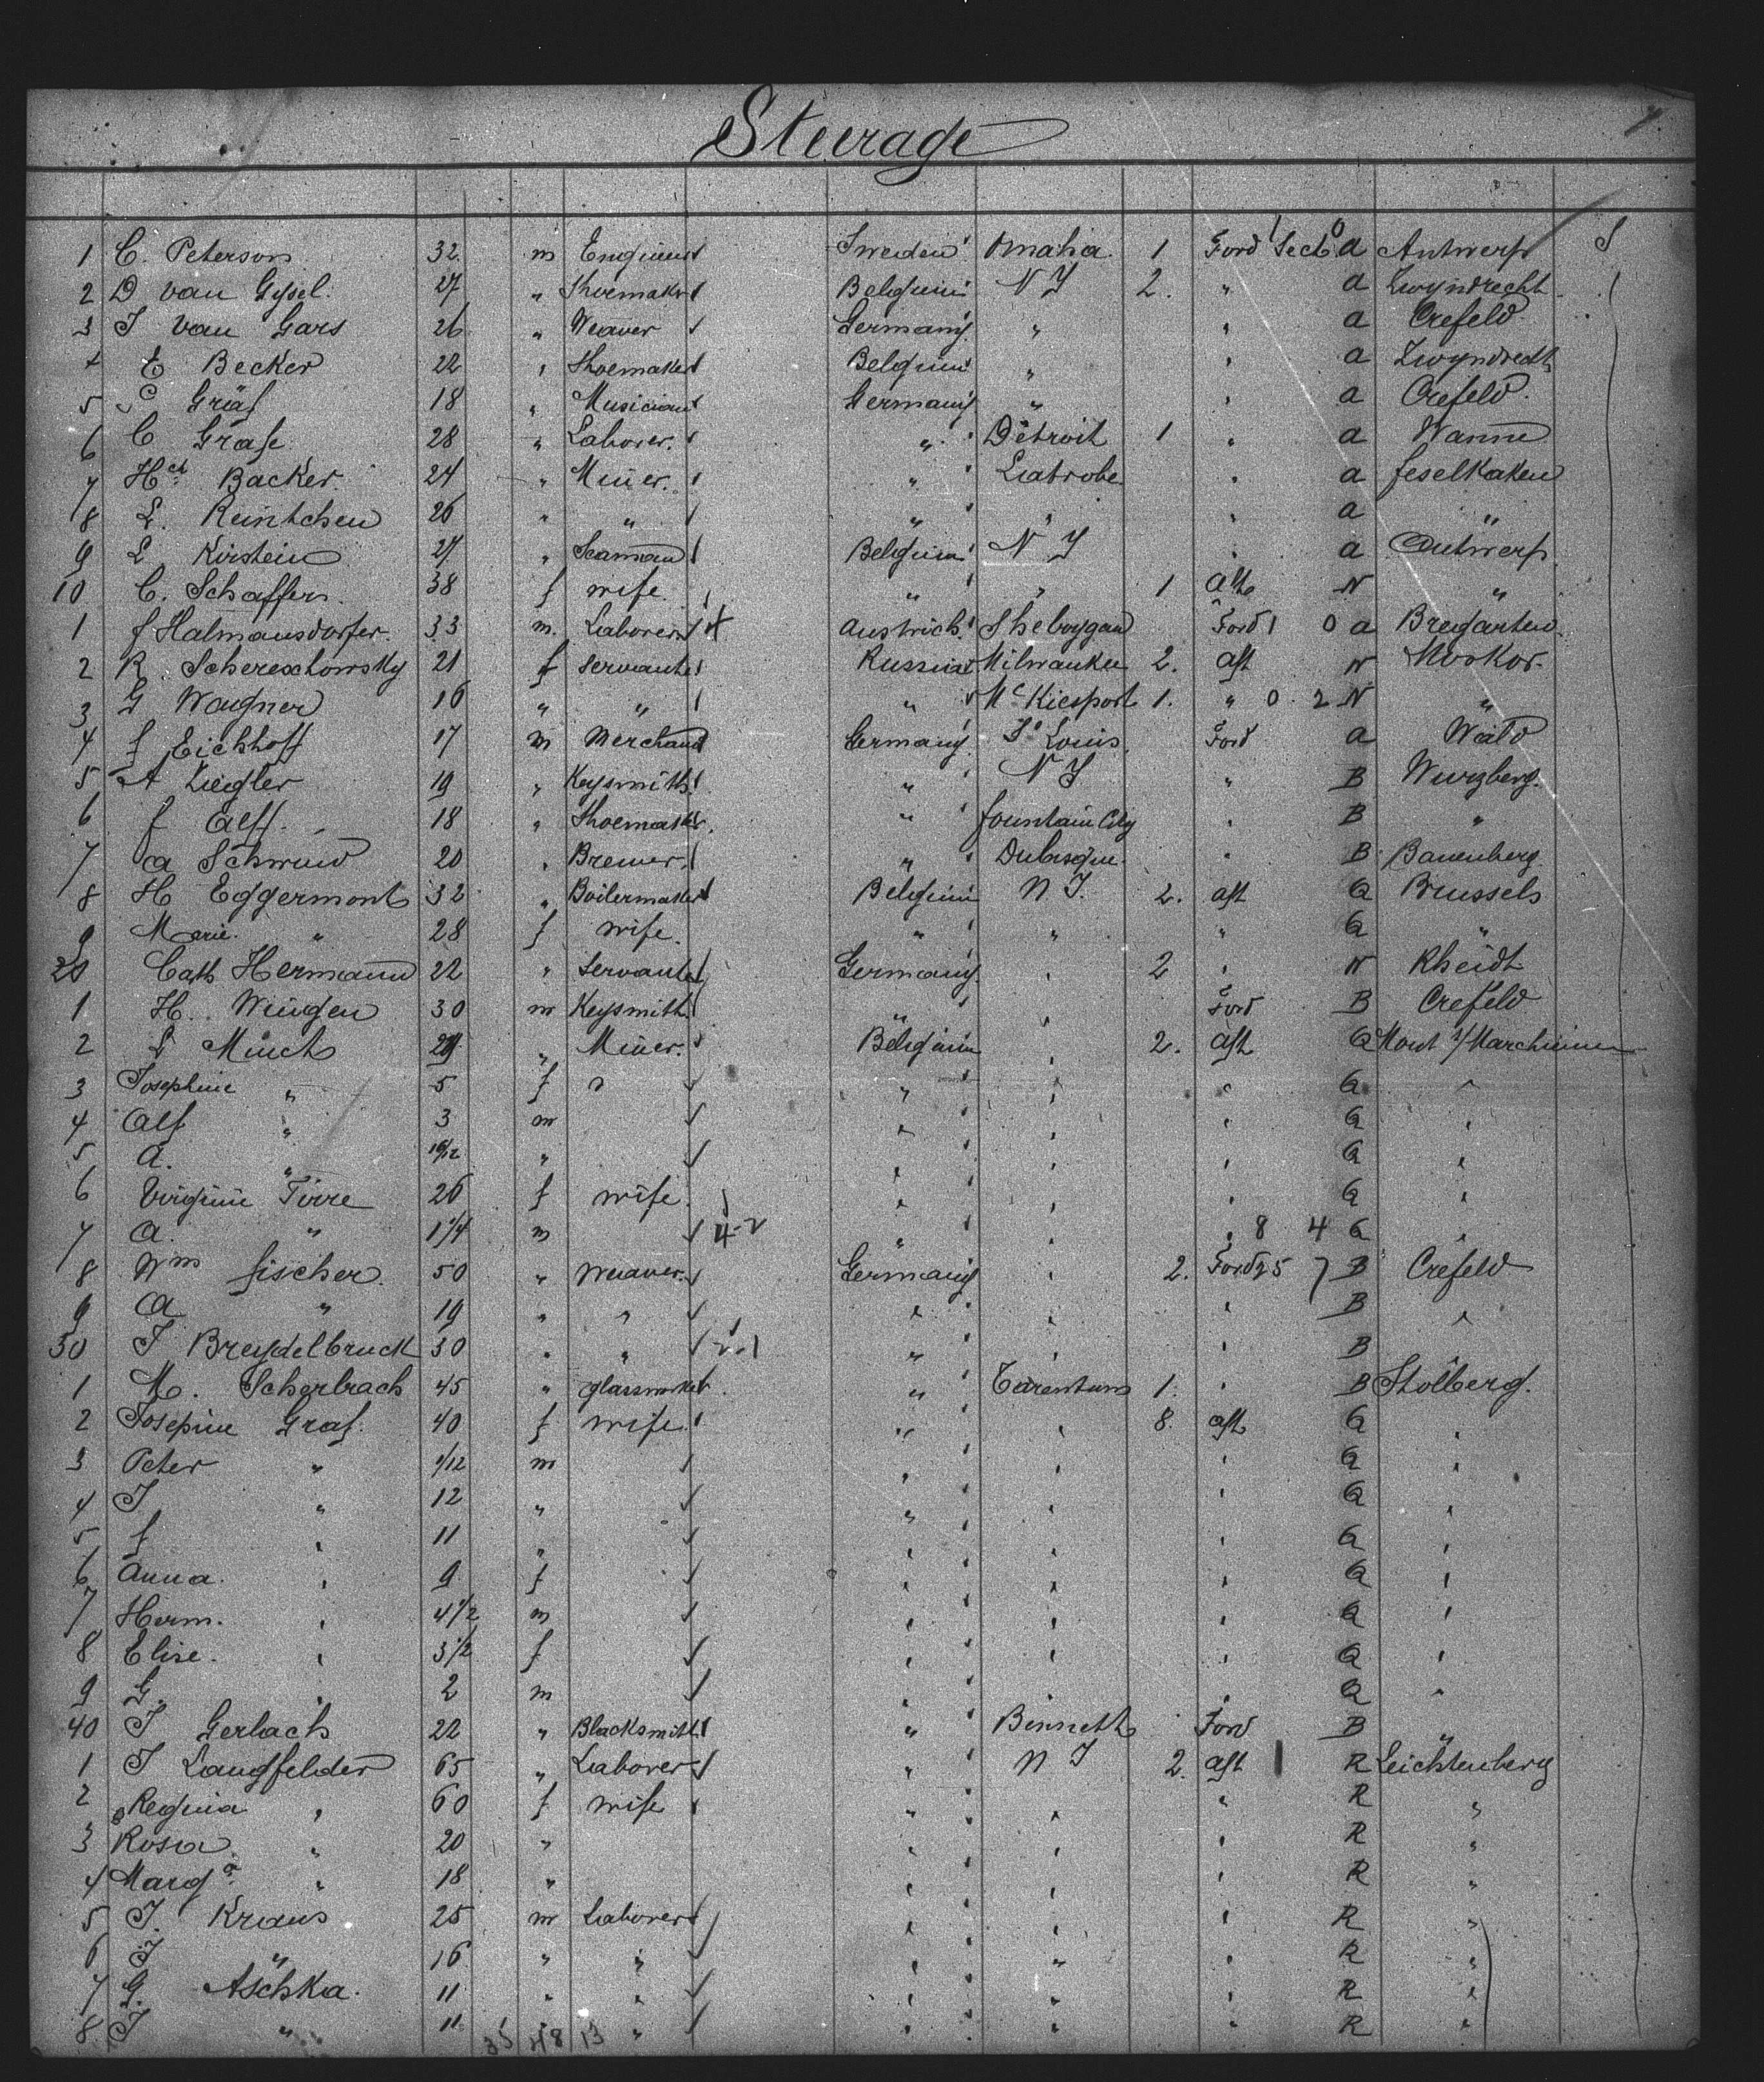 Steerage
1 C. Peterson 32 m Engineer Sweden Omaha 1 Ford 1 Sect 0 a Antwerp
2 D van Gysel. 27 " Shoemaker Belgium N Y 2. " a Zwyndrecht
3 J van Gars 26 " Weaver Germany " " a Crefeld
4 E Becker 22 " Shoemaker Belgium " " a Zwyndrecht
5 C Gräf 18 " Musician Germany " " a Crefeld.
6 C Grafe 28 " Laborer. " Detroit 1 " a Wanne
7 Hch Backer. 24 " Miner. " Latrobe " a
8 L. Reintchen 26 " " " " " a "
9 L Kirstein 27 " Seaman Belgium N Y " a Antwerp
10 C. Schaffers 38 f wife " " 1 Aft N "
1 f Halmansdorfer. 33 m. Laborer Austrich. Sheboygan Ford 1 0 a Bregarten
2 R. Schereschowsky 21 f servante Russia Milwaukee 2. aft N Moskov.
3 G Wagner 16 " " " McKiesport 1. " 0 2 N "
4 f Eichhoff 17 m Merchand Germany St Louis Ford a Wald
5 A Ziegler 19 " Keysmith " N Y " B Wurzberg.
6 f Alff. 18 " Shoemaker " fountain City " B "
7 a Schwind 20 " Brewer. " Dubuque " B Bauenberg
8 H Eggermont 32 " Boilermaker Belgium N Y. 2. aft Q Brussels
9 Marie " 28 f wife. " " " Q "
20 Cath Hermann 22 " Servante Germany " 2 " N Rheidt
1 H. Wingen 30 m Keysmith " " Ford B Crefeld
2 L Münch 29 " Miner. Belgium " 2. Aft Q Mont s/Marchienne
3 Josephine " 5 f " " " Q "
4 Alf " 3 m " " " Q "
5 A. " 10/12 " " " " Q "
6 Virginie Tirre 26 f wife. " " " Q "
7 A. " 1 1/4 m 4-2 " " " 8 4 Q "
8 Wm fischer. 50 " Weaver. Germany " 2. Ford 25 7 B Crefeld
9 A " 19 " " " " " B "
30 J Breydelbruck 30 " " 2-1 " " " B
1 M. Scherbach 45 " glassmaker " Tarentum 1. " B Stolberg.
2 Josepine Graf. 40 f wife. " " 8. aft Q "
3 Peter " 1/12 m " " " Q "
4 J " 12 " " " " Q "
5 f " 11 " " " " Q "
6 Anna. " 9 f " " " Q "
7 Herm. " 4 1/2 m " " " Q "
8 Elise. " 3 1/2 f " " " Q "
9 G. " 2 m " " " Q "
40 J Gerlach 22 " Blacksmith " Benneth Ford B "
1 J Langfelder 65 " Laborer " N Y 2. aft R Leichtenberg
2 Regina " 60 f wife " " " R "
3 Rosa " 20 " " " " R "
4 Marga " 18 " " " " R "
5 J. Kraus 25 m Laborer " " " R "
6 J " 16 " " " " " R "
7 G. Aschka. 11 " " " " " R "
8 J " 11 " " " " " R "
35 48 13